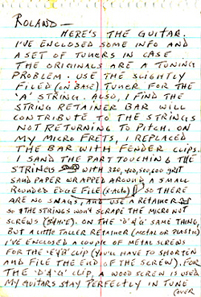 ROLAND —
HERE'S THE GUITAR.
I'VE ENCLOSED SOME INFO AND
A SET OF TUNERS IN CASE
THE ORIGINALS ARE A TUNING
PROBLEM. USE THE SLIGHTLY
FILED (ON BASE) TUNER FOR THE
'A' STRING. ALSO, I FIND THE
STRING RETAINER BAR WILL
CONTRIBUTE TO THE STRINGS
NOT RETURNING TO PITCH. ON
MY MICRO FRETS, I REPLACED
THE BAR WITH FENDER CLIPS.
I SAND THE PART TOUCHING THE
STRINGS WITH 320, 400, 600
SAND PAPER WRAPPED AROUND A SMALL
ROUNDED EDGE FILE SO THERE
ARE NO SNAGS, AND USE A RETAINER
SO THE STRINGS WON'T SCRAPE THE MICRO NUT
SCREWS. ON THE 'D'&'G' SAME THING,
BUT A LITTLE TALLER RETAINER (METAL OR PLASTIC)
I'VE ENCLOSED A COUPLE OF METAL SCREWS
FOR THE CLIP (YOU'LL HAVE TO SHORTEN
AND FILE THE END OF THE SCREW). FOR
THE 'D'&'G' CLIP, A WOOD SCREW IS USED
MY GUITARS STAY PERFECTLY IN TUNE
(OVER